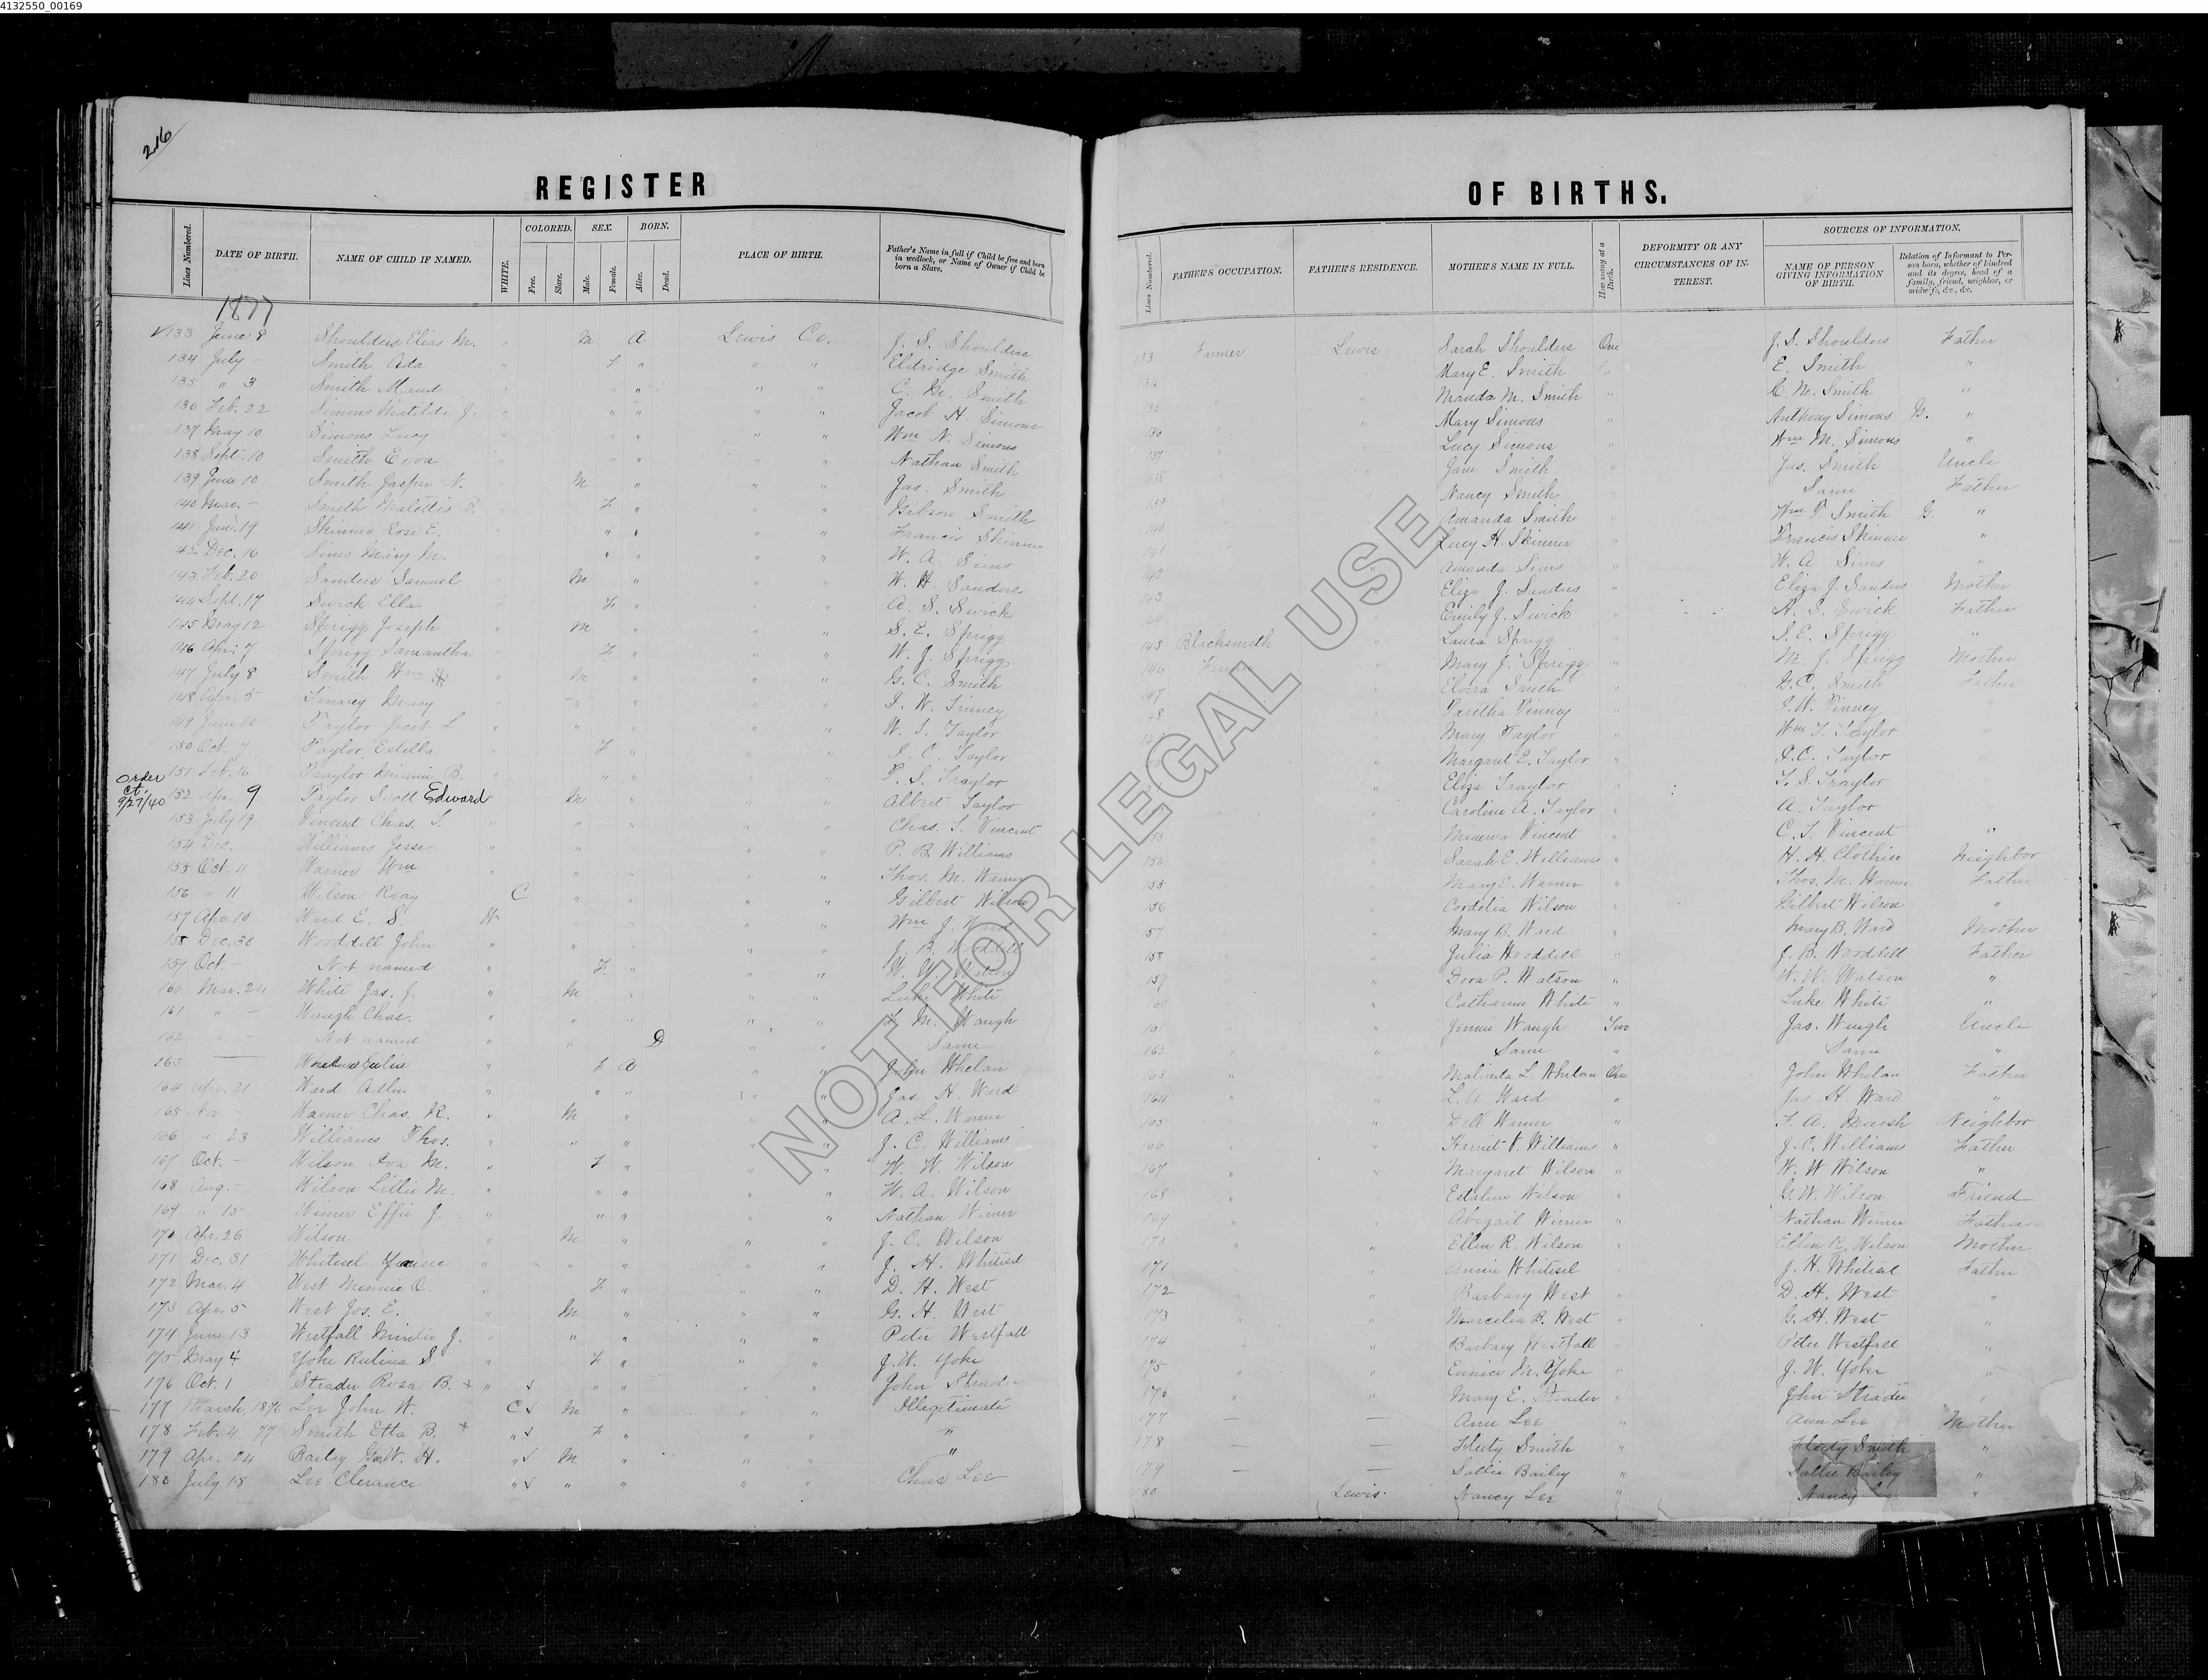 4132550_00169
216
REGISTER OF BIRTHS.
Lines Numbered. DATE OF BIRTH. NAME OF CHILD IF NAMED. WHITE. COLORED. Free. Slave. SEX. Male. Female. BORN. Alive. Dead. PLACE OF BIRTH. Father's Name in full if Child be free and born in wedlock, or Name of Owner if Child be born a Slave.
Lines Numbered. FATHER'S OCCUPATION. FATHER'S RESIDENCE. MOTHER'S NAME IN FULL. How many at a Birth. DEFORMITY OR ANY CIRCUMSTANCES OF INTEREST. SOURCES OF INFORMATION. NAME OF PERSON GIVING INFORMATION OF BIRTH. Relation of Informant to Person born, whether of kindred and its degree, head of a family, friend, neighbor, or midwife, &c., &c.
1877
133 June 8 Shoulders Elias M. " M A Lewis Co. J. S. Shoulders 133 Farmer Lewis Sarah Shoulders One J. S. Shoulders Father
134 July - Smith Ada " F " " " Eldridge Smith 134 " " Mary E. Smith " E. Smith "
135 " 3 Smith Maud " " " " " C. M. Smith 135 " " Manda M. Smith " C. M. Smith "
136 Feb. 22 Simons Matilda J. " " " " " Jacob H. Simons 136 " " Mary Simons " Anthony Simons G. "
137 May 10 Simons Lucy " " " " " Wm N. Simons 137 " " Lucy Simons " Wm M. Simons "
138 Sept. 10 Smith Evon " " " " " Nathan Smith 138 " " Jane Smith " Jas. Smith Uncle
139 June 10 Smith Jasper N. " M " " " Jas. Smith 139 " " Nancy Smith " Same Father
140 Mar. - Smith P. " F " " " Gibson Smith 140 " " Amanda Smith " Wm P. Smith G. "
141 Jan. 19 Skinner Rose E. " " " " " Francis Skinner 141 " " Lucy H. Skinner " Francis Skinner "
142 Dec. 16 Sims Mary M. " " " " " W. A. Sims 142 " " Amanda Sims " W. A. Sims "
143 Feb. 20 Sanders Samuel " M " " " W. H. Sanders 143 " " Eliza J. Sanders " Eliza J. Sanders Mother
144 Sept. 17 Swick Ella " F " " " A. S. Swick 144 " " Emily J. Swick " A. S. Swick Father
145 May 12 Sprigg Joseph " M " " " S. E. Sprigg 145 Blacksmith " Laura Sprigg " S. E. Sprigg "
146 Apr. 7 Sprigg Samantha " F " " " W. J. Sprigg 146 Farmer " Mary J. Sprigg " M. J. Sprigg Mother
147 July 8 Smith Wm " M " " " G. C. Smith 147 " " Elvira Smith " G. C. Smith Father
148 Apr. 5 Tinney Mary " - " " " J. W. Tinney 48 " " Tinney " J. W. Tinney "
149 June 10 Taylor Jacob L. " " " " " W. T. Taylor " " Mary Taylor " Wm T. Taylor "
150 Oct. 7 Taylor Estilla " F " " " J. C. Taylor " " Margaret E. Taylor " J. C. Taylor "
151 Feb. 16 Traylor B. " " " " " T. S. Traylor " " Eliza Traylor " T. S. Traylor "
Order ct. 9/27/40 152 Apr. 9 Taylor Scott Edward " M " " " Albert Taylor " " Caroline A. Taylor " A. Taylor "
153 July 19 Vincent Chas. T. " " " " " Chas. T. Vincent 153 " " Minerva Vincent " C. T. Vincent "
154 Dec. Williams Jesse " " " " " P. B. Williams 154 " " Sarah E. Williams " H. H. Clothier Neighbor
155 Oct. 11 Warner Wm " " " " " Thos. M. Warner 155 " " Mary E. Warner " Thos. M. Warner Father
156 " 11 Wilson Roay C " " " " Gilbert Wilson 156 " " Cordelia Wilson " Gilbert Wilson "
157 Apr. 10 Ward E. S. W " " " " Wm J. Ward 157 " " Mary B. Ward " Mary B. Ward Mother
158 Dec. 30 Wooddell John " " " " " J. B. Wooddell 158 " " Julia Wooddell " J. B. Wooddell Father
159 Oct. - Not named " F " " " W. W. Watson 159 " " Dora P. Watson " W. W. Watson "
160 Mar. 24 White Jas. J. " M " " " Luke White 160 " " Catharine White " Luke White "
161 " - Waugh Chas. " " " " " M. Waugh 161 " " Jennie Waugh Two Jas. Waugh Uncle
162 " - Not named " " D " " Same 162 " " Same " Same "
163 — " F A " " John Whelan 163 " " Malinda L. Whelan One John Whelan Father
164 Apr. 21 Ward " " " " " Jas. H. Ward 164 " " L. Ward " Jas. H. Ward "
165 Nov. - Warner Chas. R. " M " " " A. L. Warner 165 " " Dell Warner " T. A. Marsh Neighbor
166 " 23 Williams Thos. " " " " " J. C. Williams 166 " " Harriet V. Williams " J. C. Williams Father
167 Oct. - Wilson Iva M. " F " " " W. W. Wilson 167 " " Margaret Wilson " W. W. Wilson "
168 Aug. - Wilson Lillie M. " " " " " W. A. Wilson 168 " " Estaline Wilson " G. W. Wilson Friend
169 " 15 Wimer Effie J. " " " " " Nathan Wimer 169 " " Abigail Wimer " Nathan Wimer Father
170 Apr. 26 Wilson " M " " " J. C. Wilson 170 " " Ellen R. Wilson " Ellen R. Wilson Mother
171 Dec. 31 Whitesel " " " " " J. H. Whitesel 171 " " Annie Whitesel " J. H. Whitesel Father
172 Mar. 4 West Minnie O. " F " " " D. H. West 172 " " Barbary West " D. H. West "
173 Apr. 5 West Jos. E. " M " " " G. H. West 173 " " Marcelia B. West " G. H. West "
174 June 13 Westfall Minter J. " " " " " Peter Westfall 174 " " Barbary Westfall " Peter Westfall "
175 May 4 Yoke Rulina S. " F " " " J. W. Yoke 175 " " Eunice M. Yoke " J. W. Yoke "
176 Oct. 1 Strader Rosa B. + " √ " " " " John Strader 176 " " Mary E. Strader " John Strader "
177 March, 1876 Lee John W. C √ M " " " Illegitimate 177 — — Ann Lee " Ann Lee Mother
178 Feb. 4 77 Smith Etta B. + " √ F " " " " 178 — — Fleety Smith " Fleety Smith "
179 Apr. 24 Bailey Geo W. H. " √ M " " " 179 — — Sallie Bailey " Sallie Bailey "
180 July 18 Lee Clerance " √ " " " " Chas Lee 80 Lewis. Nancy Lee " Nancy "
NOT FOR LEGAL USE